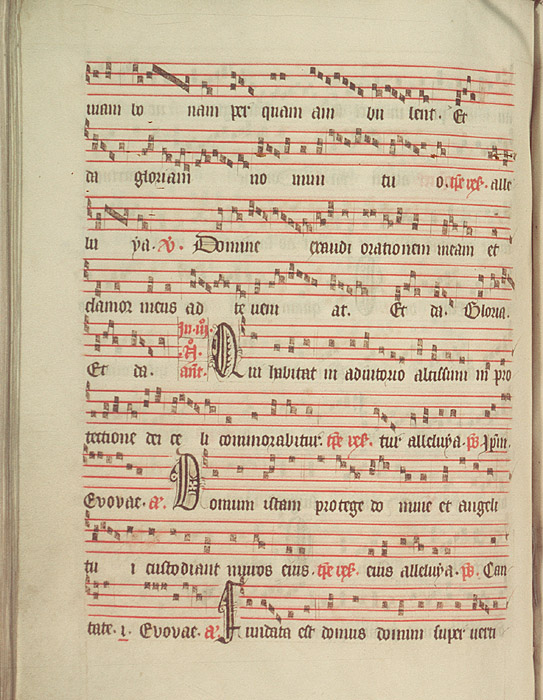 uiam bo nam per quam am bu lent. Et
da gloriam no mini tu o. tp̄e res. alle
lu ya. v. Domine exaudi orationem meam et
clamor meus ad te veni at. Et da. Gloria.
Et da. In iii. A. ant. Qui habitat in adiutorio altissimi in pro
tectione dei ce li commorabitur. tp̄e res. tur alleluya. ps̄. Ip̄m.
Evovae. a. Domum istam protege do mine et angeli
tu i custodiant muros eius. tp̄e res. eius alleluya. ps̄. Can
tate. i. Evovae. a. Fundata est domus domini super verti